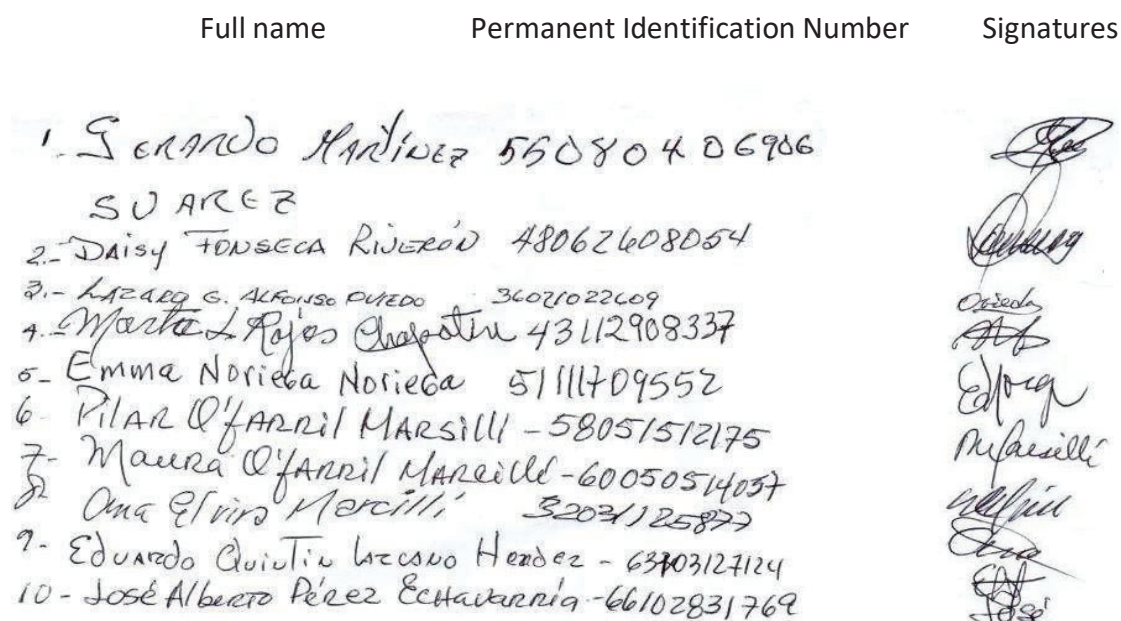 Full name Permanent Identification Number Signatures
1. Gerardo Martínez 55080406906
Suarez
2.- Daisy Fonseca Riverón 48062608054
3.- Lazaro G. Alfonso Oviedo 36021022609 Oviedo
4.- Marta L Rojas Chapotin 43112908337
5- Emma Noriega Noriega 51111709552
6- Pilar O'farril Marsilli - 58051512175
7- Maura O'farril - 60050514057
8- Ana Elvira Marcilli 32031125877 Ana
9- Eduardo Quintin Lazcano - 63103127124
10- José Alberto Pérez Echavarría - 66102831769 José